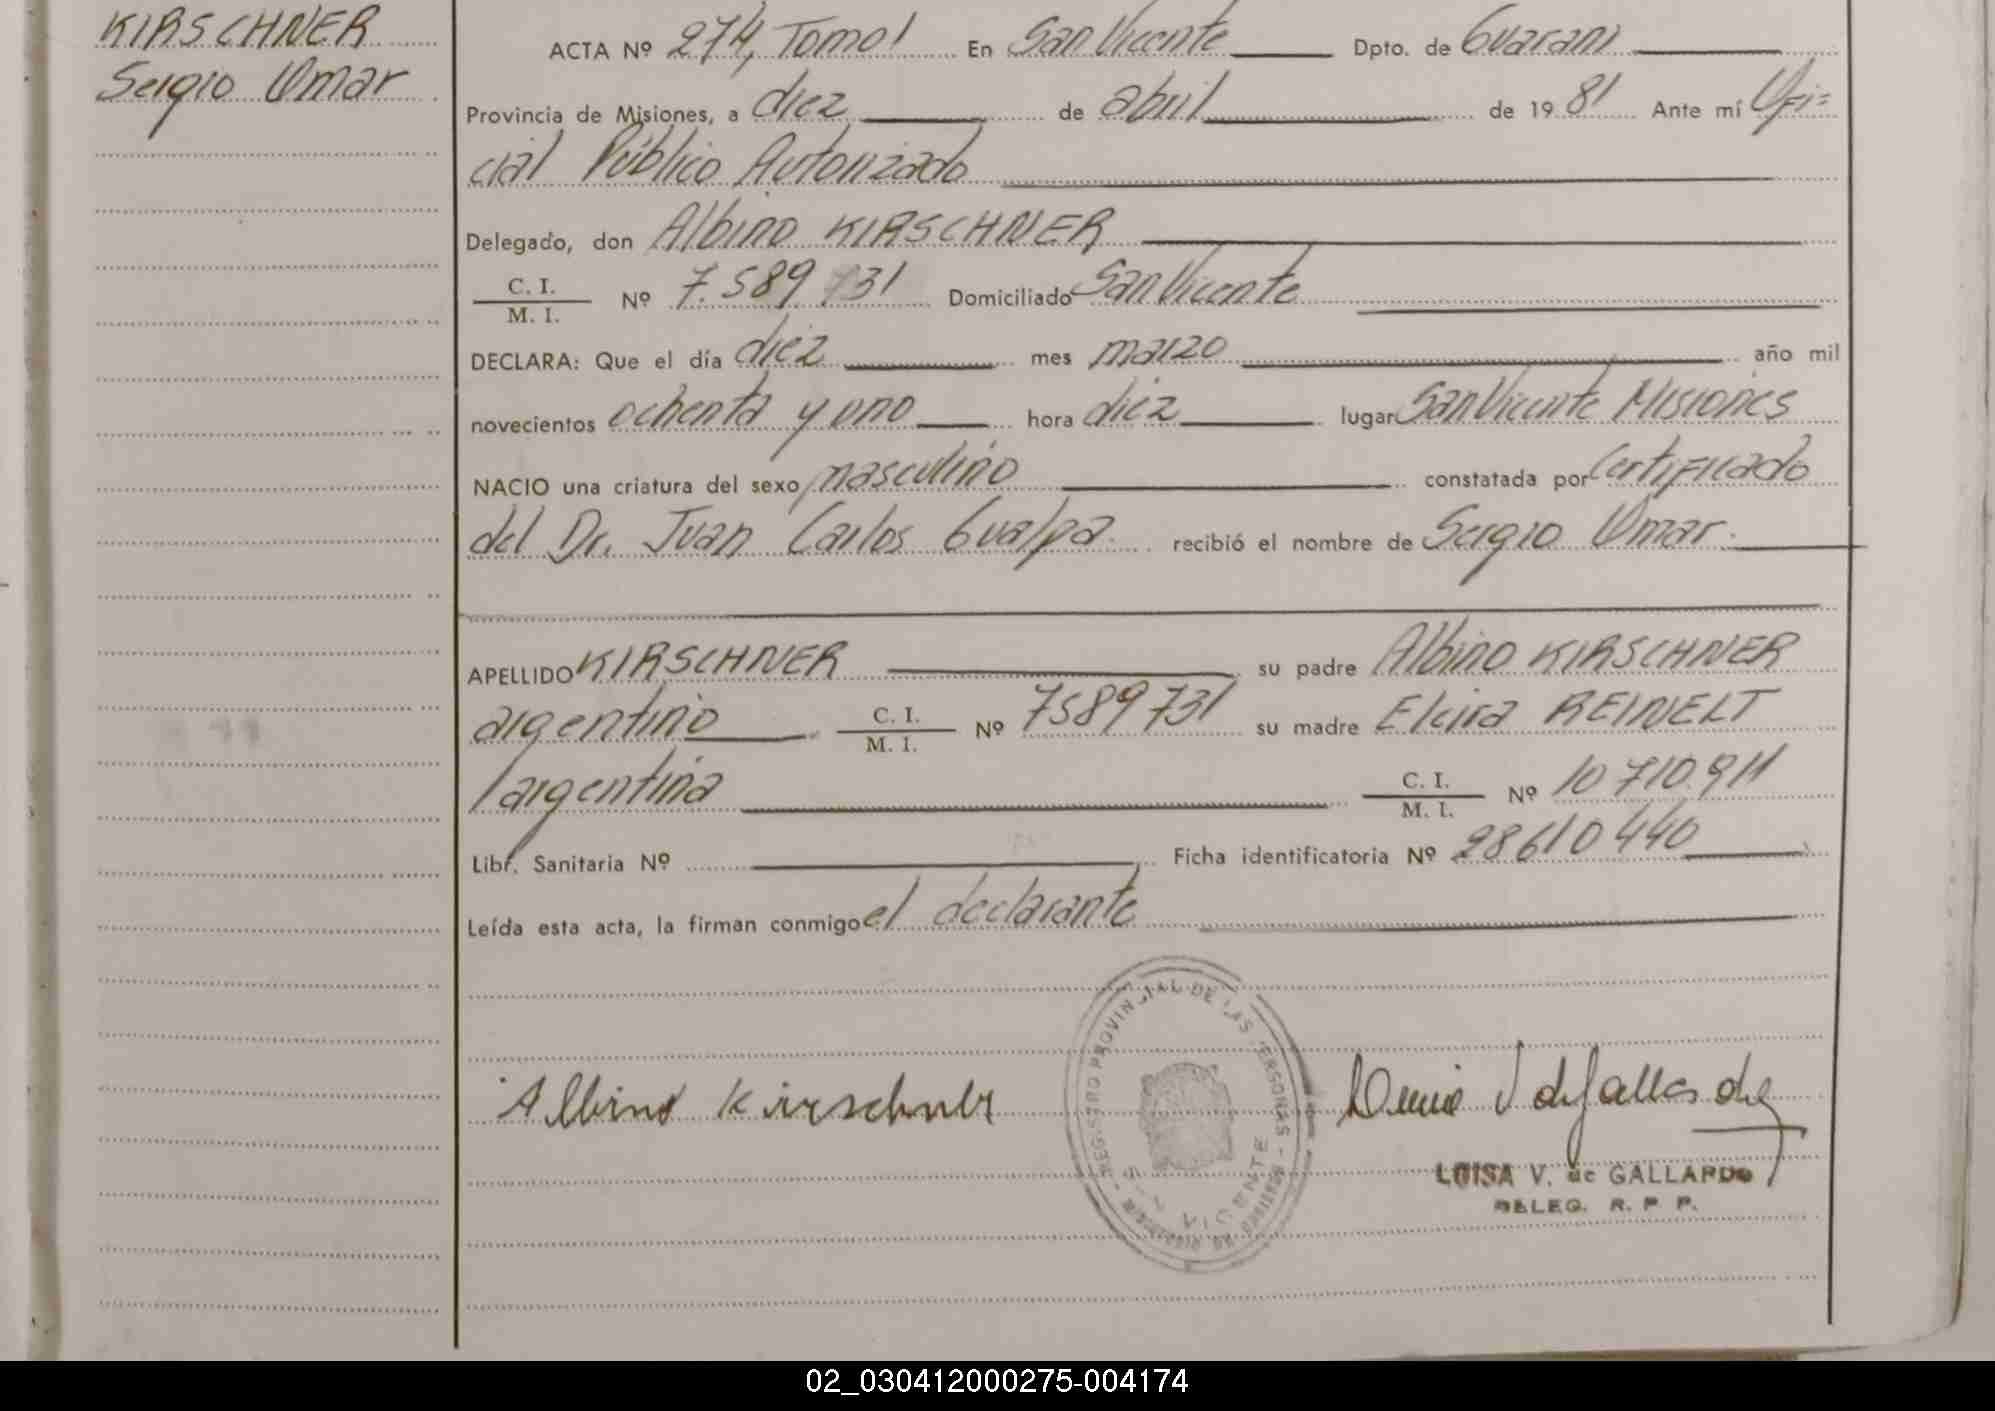 KIRSCHNER
Sergio Omar
ACTA Nº 274, Tomo I En San Vicente Dpto. de Guaraní
Provincia de Misiones, a diez de abril de 1981 Ante mí Ofi=
cial Público Autorizado
Delegado, don Albino KIRSCHNER
C. I.
M. I. Nº 7.589.731 Domiciliado San Vicente
DECLARA: Que el día diez mes marzo año mil
novecientos ochenta y uno hora diez lugar San Vicente Misiones
NACIO una criatura del sexo masculino constatada por Certificado
del Dr. Juan Carlos Gualpa. recibió el nombre de Sergio Omar.
APELLIDO KIRSCHNER su padre Albino KIRSCHNER
argentino C. I.
M. I. Nº 7589731 su madre Elcira REINELT
argentina C. I.
M. I. Nº 10710.911
Libr. Sanitaria Nº Ficha identificatoria Nº 28610440
Leída esta acta, la firman conmigo el declarante
Albino Kirschner
REGISTRO PROVINCIAL DE LAS PERSONAS - MISIONES
VICENTE
LUISA V. de GALLARDO
DELEG. R. P. P.
02_030412000275-004174